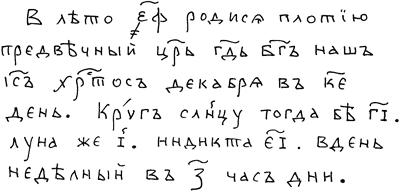 В лѣто ҂е҃ф родисѧ плотїю
предвѣчный цр҃ь гд҇ь бг҃ъ нашъ
іс҃ъ хрⷭ҇тосъ декабрѧ въ к҃е
день. Крꙋгъ слн҃цу тогда бѣ г҃і.
луна же і҃. индикта е҃і. вдень
недѣлный въ з҃ часъ дни.